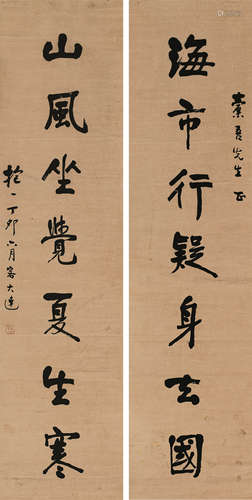 素吾先生正
海市行疑身去國
山風坐覺夏生寒
丁卯六月客大連